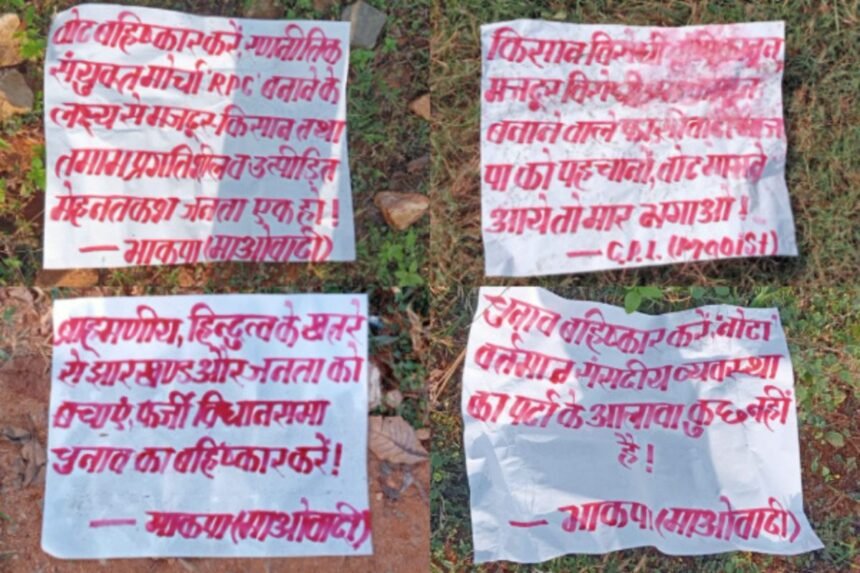 वोट बहिष्कार करें, रणनीतिक
संयुक्त मोर्चा 'RPC' बनाने के
लक्ष्य से मजदूर-किसान तथा
तमाम प्रगतिशील व उत्पीड़ित
मेहनतकश जनता एक हो!
— भाकपा (माओवादी)
किसान विरोधी
मजदूर विरोधी
बनाने वाले फासीवादी भाज
पा को पहचानो, वोट मांगने
आये तो मार भगाओ!
— C.P.I. (Maoist)
ब्राह्मणीय, हिन्दुत्व के खतरे
से झारखण्ड और जनता को
बचाएं, फर्जी विधानसभा
चुनाव का बहिष्कार करें!
— भाकपा (माओवादी)
चुनाव बहिष्कार करें, 'नोटा'
वर्तमान संसदीय व्यवस्था
का पर्दा के आलावा कुछ नहीं
है!
— भाकपा (माओवादी)